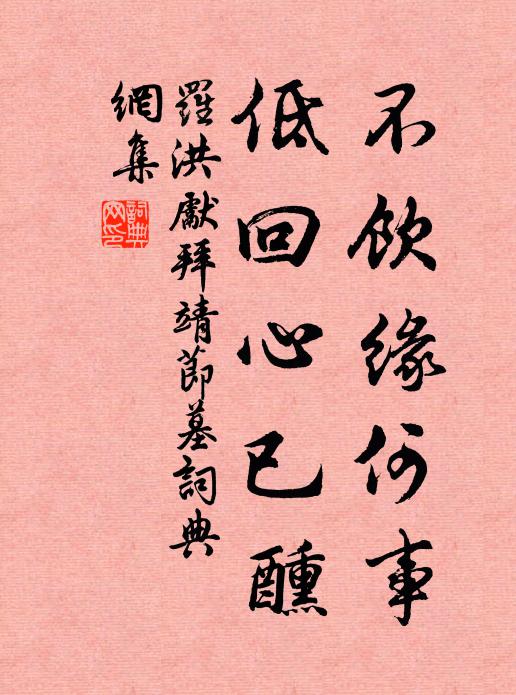 不飲緣何事
低回心已醺
羅洪獻拜靖節墓詞典
網集
詞典網印